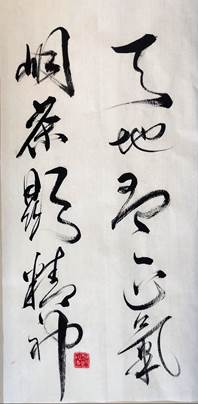 天地有正氣
岄茶顯精神